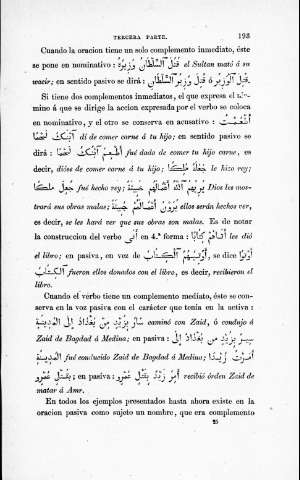 TERCERA PARTE. 193
Cuando la oracion tiene un solo complemento inmediato, éste
se pone en nominativo: قَتَلَ ٱلسُّلْطَانُ وَزِيرَهُ el Sultan mató á su
wacir; en sentido pasivo se dirá: قُتِلَ ٱلْوَزِيرُ ó قُتِلَ وَزِيرُ ٱلسُّلْطَانِ.
Si tiene dos complementos inmediatos, el que expresa el tér-
mino á que se dirige la accion expresada por el verbo se coloca
en nominativo, y el otro se conserva en acusativo: أَطْعَمْتُ
آبْنَكَ لَحْمًا dí de comer carne á tu hijo; en sentido pasivo se
dirá: أُطْعِمَ آبْنُكَ لَحْمًا fué dado de comer tu hijo carne, es
decir, dióse de comer carne á tu hijo; جَعَلَهُ مَلِكًا le hizo rey;
جُعِلَ مَلِكًا fué hecho rey; يُرِيهِمُ ٱللّٰهُ أَعْمَالَهُمْ خَبِيثَةً Dios les mos-
trará sus obras malas; يُرَوْنَ أَعْمَالَهُمْ خَبِيثَةً ellos serán hechos ver,
es decir, se les hará ver que sus obras son malas. Es de notar
la construccion del verbo أتى en 4.ª forma: آتَاهُمْ كِتَابًا les dió
el libro; en pasiva, en vez de أُوتِيَهُمُ ٱلْكِتَابُ, se dice أُوتُوا
ٱلْكِتَابَ fueron ellos donados con el libro, es decir, recibieron el
libro.
Cuando el verbo tiene un complemento mediato, éste se con-
serva en la voz pasiva con el carácter que tenía en la activa:
سَارَ بِزَيْدٍ مِن بَغْدَادَ إِلَى ٱلْمَدِينَةِ caminó con Zaid, ó condujo á
Zaid de Bagdad á Medina; en pasiva: سِيرَ بِزَيْدٍ مِن بَغْدَادَ إِلَى
ٱلْمَدِينَةِ fué conducido Zaid de Bagdad á Medina; أَمَرْتُ زَيْدًا
بِقَتْلِ عَمْرٍو; en pasiva: أُمِرَ زَيْدٌ بِقَتْلِ عَمْرٍو recibió órden Zaid de
matar á Amr.
En todos los ejemplos presentados hasta ahora existe en la
oracion pasiva como sujeto un nombre, que era complemento
25